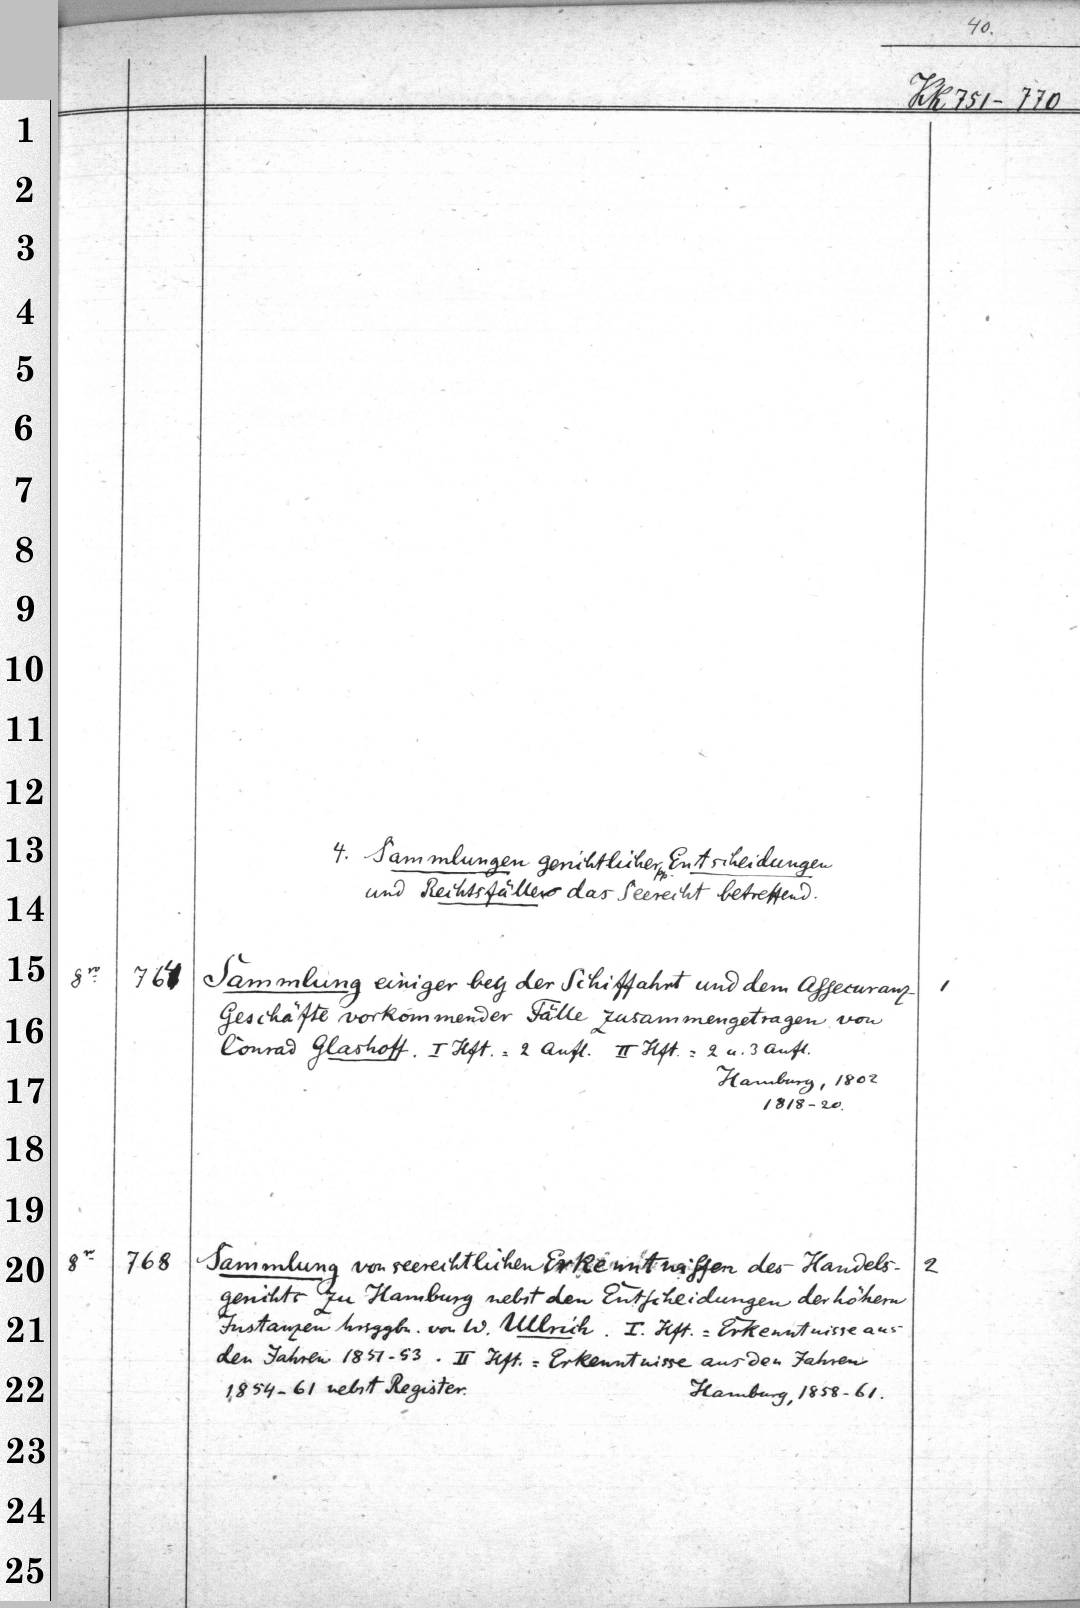 40.
Kk 751-770
1
2
3
4
5
6
7
8
9
10
11
12
13
4. Sammlungen gerichtlicher pp. Entscheidungen
und Rechtsfälle das Seerecht betreffend.
14
15
8ro 764 Sammlung einiger bey der Schiffahrt und dem Assecuranz- 1
Geschäfte vorkommender Fälle zusammengetragen von
16
Conrad Glashoff. I Hft. = 2 Aufl. II Hft. = 2 u. 3 Aufl.
17
Hamburg, 1802
1818-20.
18
19
20
8ro 768 Sammlung von seerechtlichen Erkenntnissen des Handels- 2
gerichts zu Hamburg nebst den Entscheidungen der höhern
21
Instanzen hrsggbn. von W. Ullrich. I. Hft. = Erkenntnisse aus
den Jahren 1851-53. II Hft. = Erkenntnisse aus den Jahren
22
1854-61 nebst Register. Hamburg, 1858-61.
23
24
25